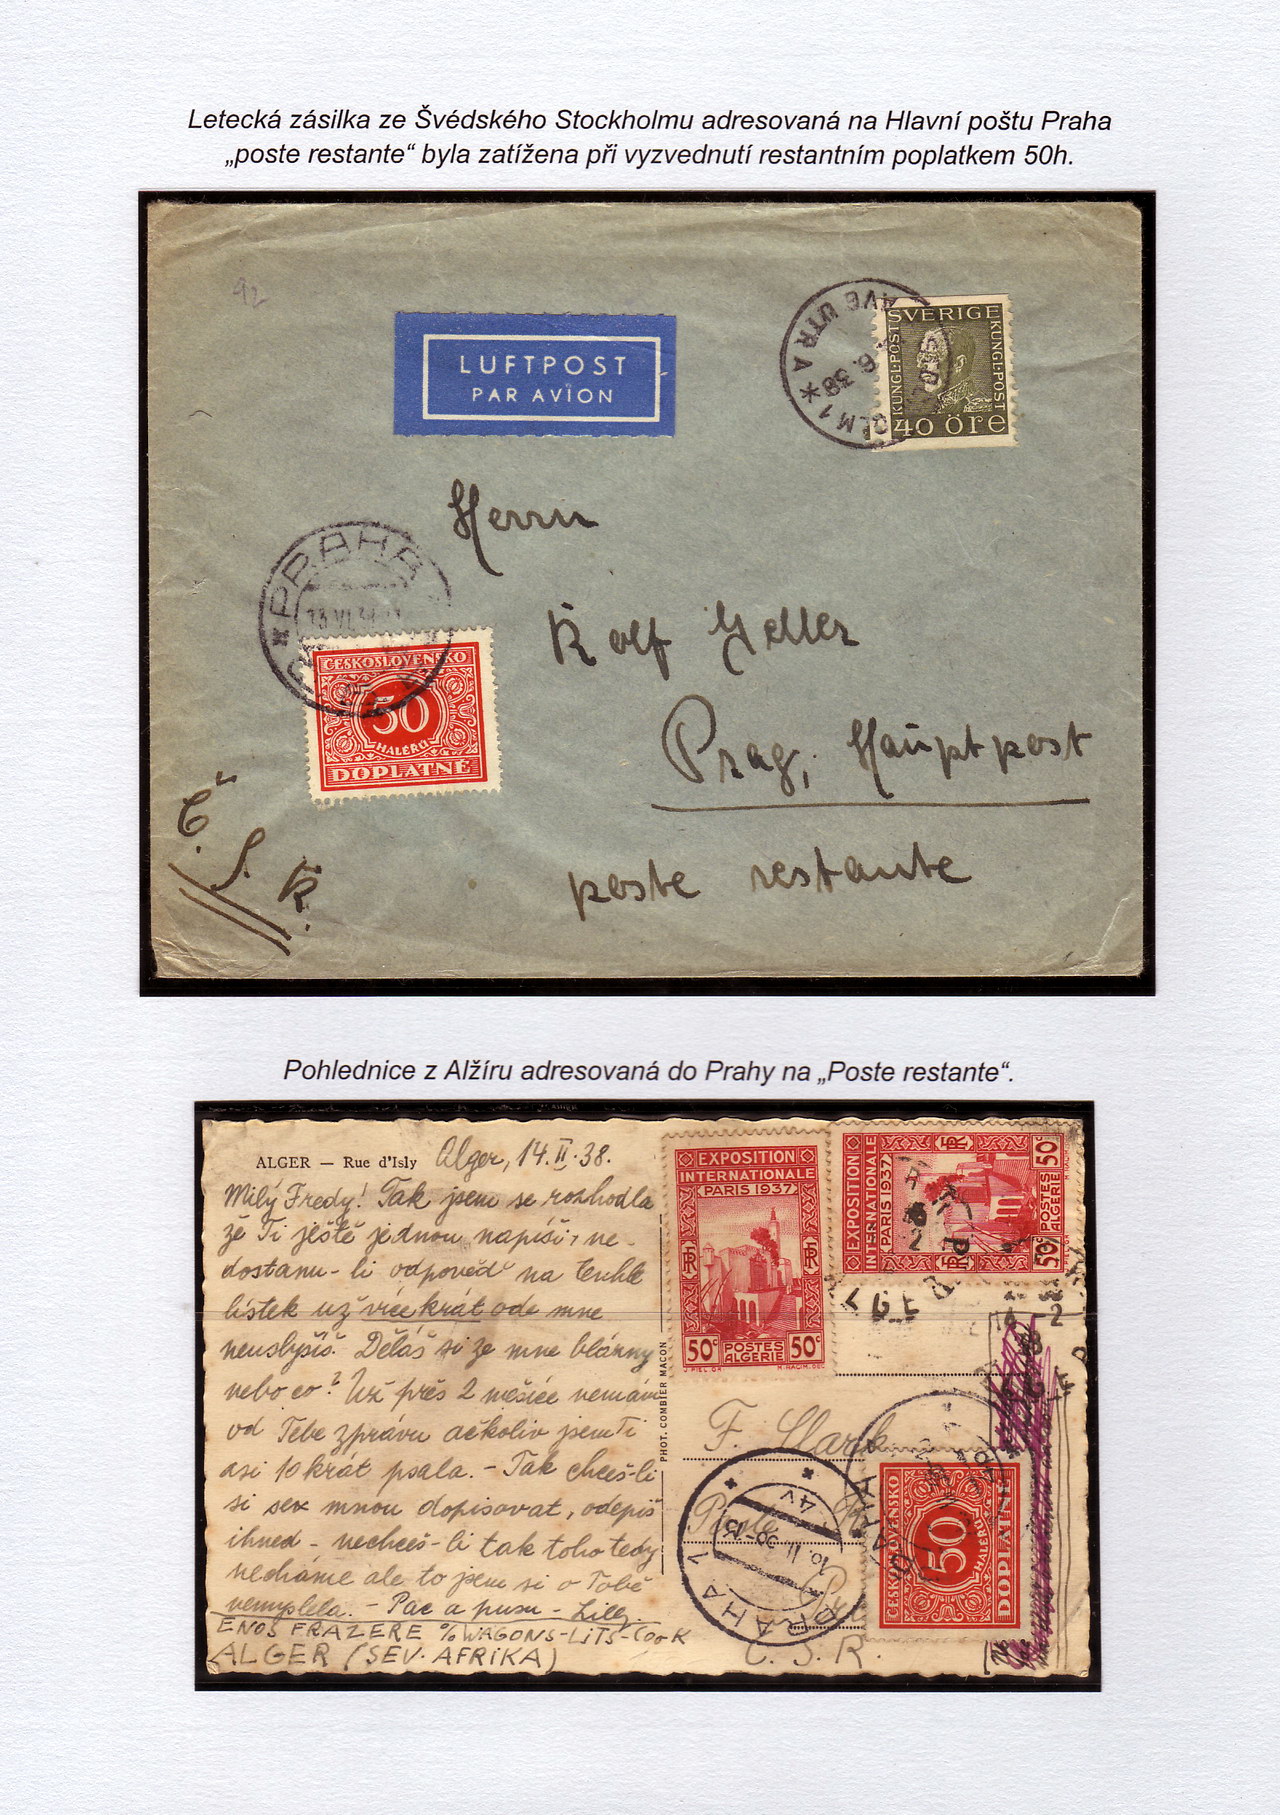 Letecká zásilka ze Švédského Stockholmu adresovaná na Hlavní poštu Praha
„poste restante“ byla zatížena při vyzvednutí restantním poplatkem 50h.
92
LUFTPOST
PAR AVION
AVG UTR A * LM 1
6. 38
SVERIGE
KUNGL. POST
KUNGL. POST
40 öre
Herrn
Rolf Geller
Prag, Hauptpost
poste restante
* PRAHA
ČESKOSLOVENSKO
50
HALÉŘŮ
DOPLATNÉ
Č. S. R.
Pohlednice z Alžíru adresovaná do Prahy na „Poste restante“.
ALGER — Rue d'Isly Alger, 14. II. 38.
Milý Fredy! Tak jsem se rozhodla
že Ti ještě jednou napíši, ne-
dostanu-li odpověď na tenhle
lístek už více krát ode mne
neuslyšíš. Děláš si ze mne blázny
nebo co? Už přes 2 měsíce nemám
od Tebe zprávu ačkoliv jsem Ti
asi 10 krát psala. - Tak chceš-li
si se mnou dopisovat, odepiš
ihned - nechceš-li tak toho tedy
necháme ale to jsem si o Tobě
nemyslela. - Pac a pusu - Lilly.
ENOS FRAZERE % WAGONS-LITS-COOK
ALGER (SEV. AFRIKA)
PHOT. COMBIER MACON
EXPOSITION
INTERNATIONALE
PARIS 1937
RF
50c POSTES ALGERIE 50c
EXPOSITION
INTERNATIONALE
PARIS 1937
RF
50c POSTES ALGERIE 50c
F. Clark
Poste
PRAHA 1
4V
ČESKOSLOVENSKO
50
HALÉŘŮ
DOPLATNÉ
Č. S. R.